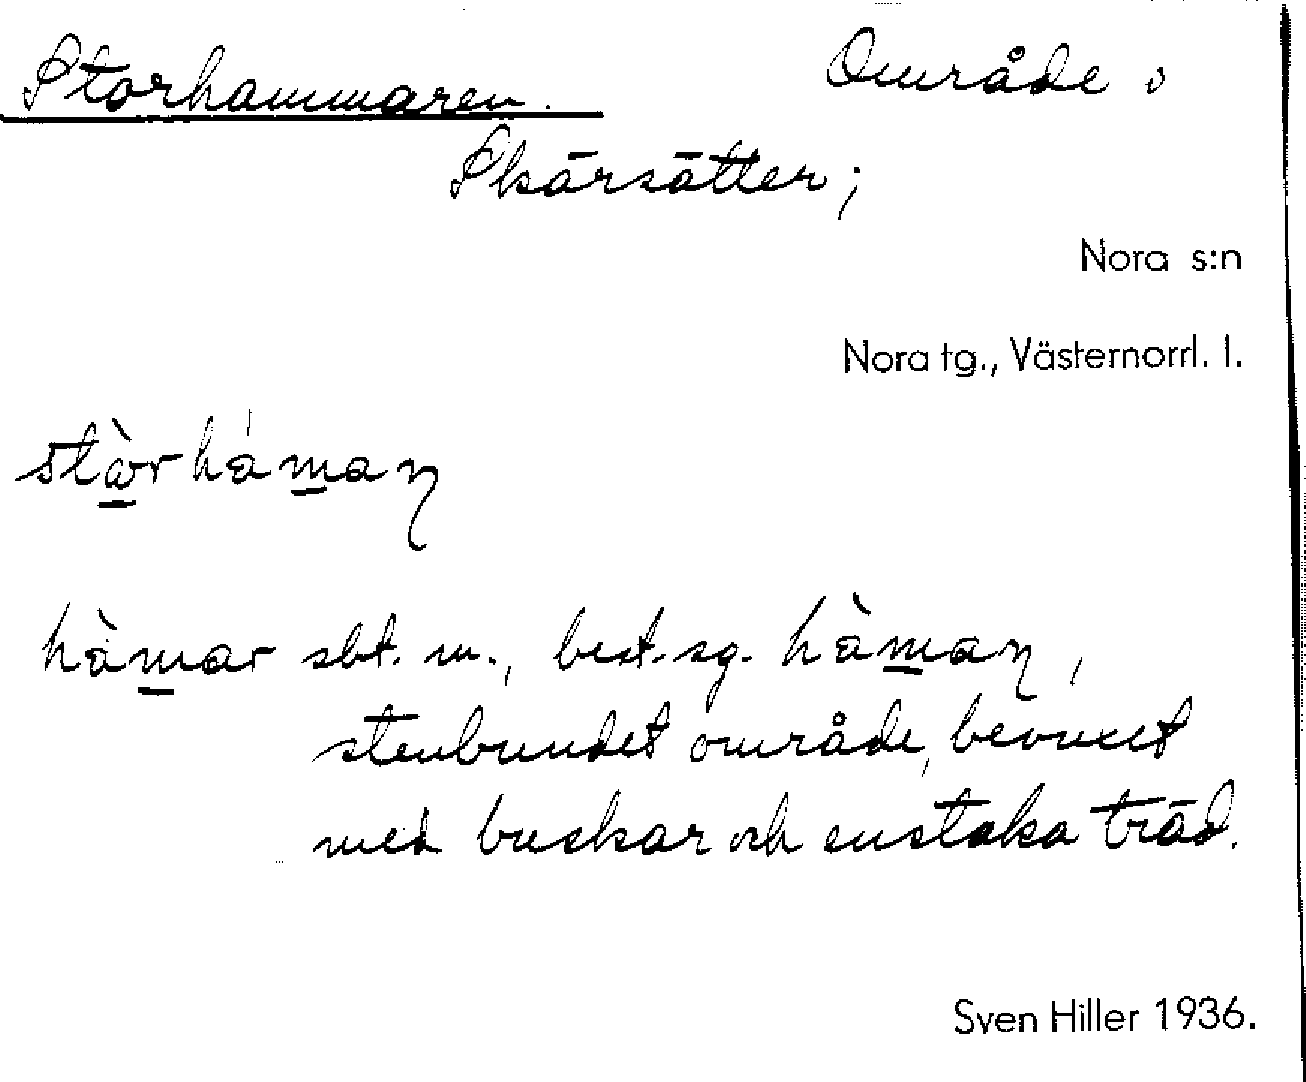 Storhammaren. Område i
Skärsätter;
Nora s:n
Nora tg., Västernorrl. l.
hàmar sbt. m., best. sg. hàmaɳ,
stenbundet område, bevuxet
med buskar och enstaka träd.
Sven Hiller 1936.